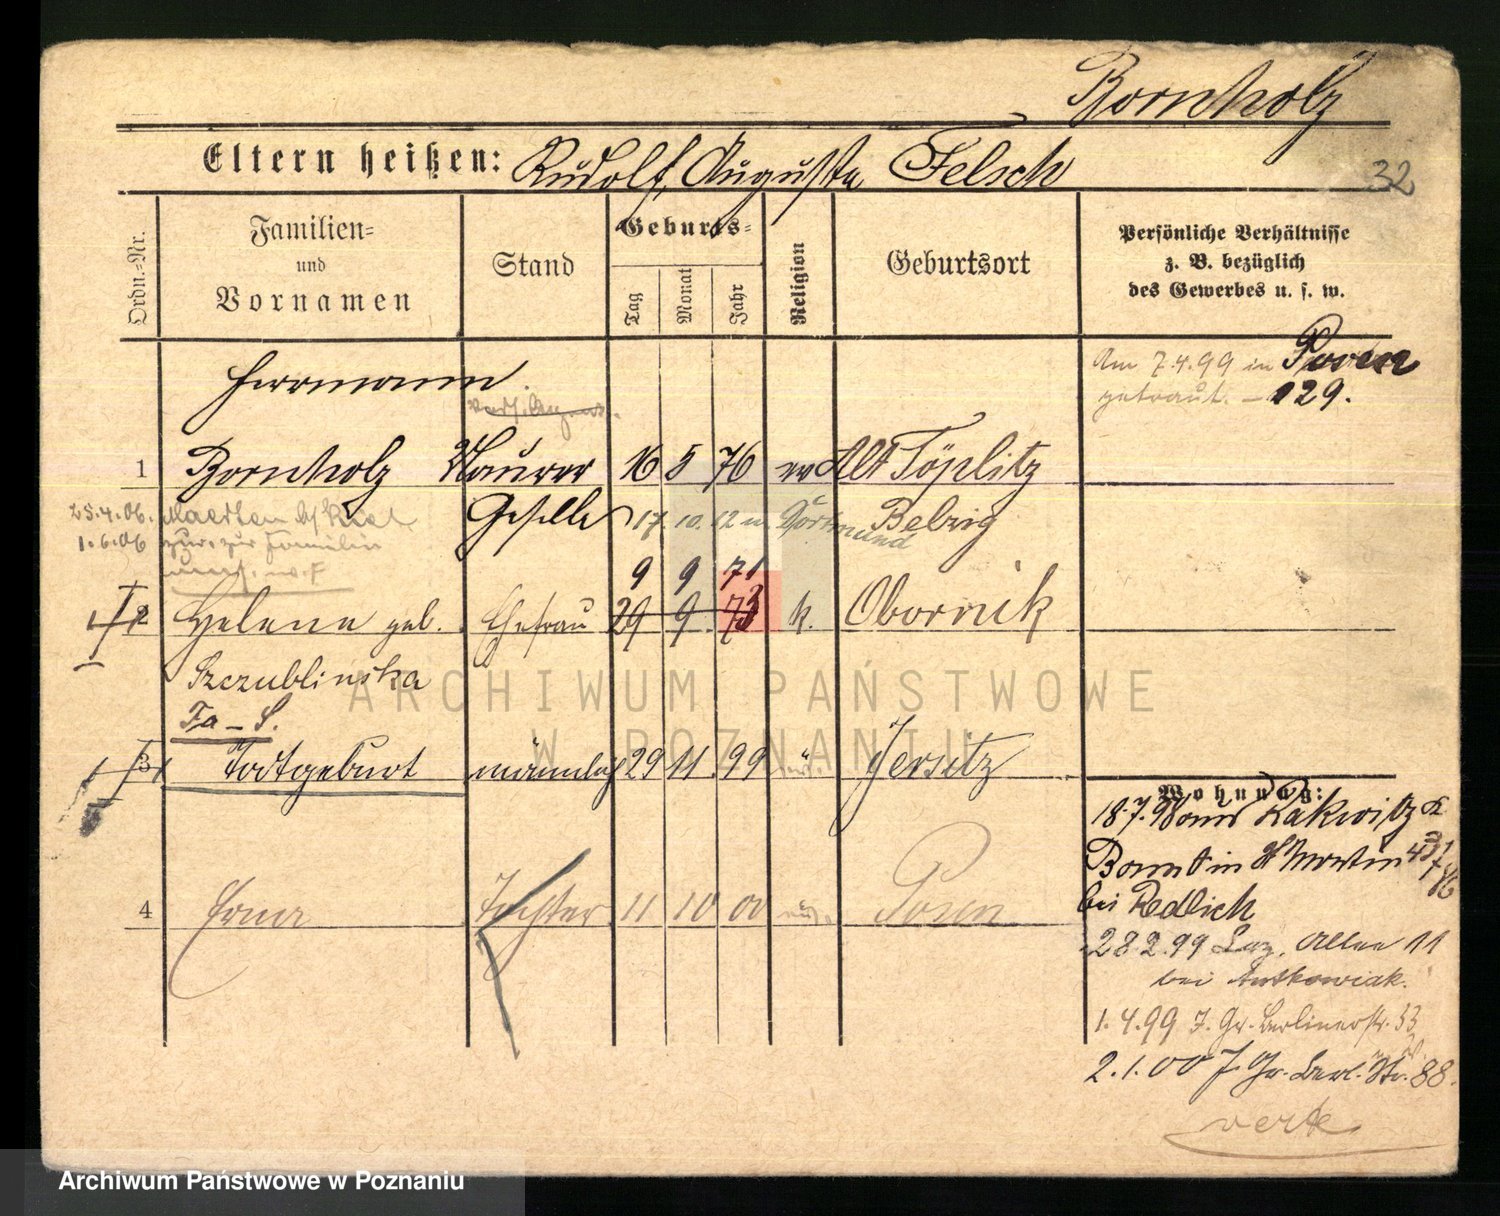 Bornholz
Eltern heißen: Rudolf, Auguste Felsch
32
Ordn.-Nr.
Familien-
und
Vornamen
Stand
Geburts-
Tag
Monat
Jahr
Religion
Geburtsort
Persönliche Verhältnisse
z. B. bezüglich
des Gewerbes u. s. w.
Am 7.4.99 in Posen
getraut. – 129.
Herrmann
1 Bornholz Maurer 16 5 76 ev Alt Töplitz
Geselle 17. 10. 12 n. Dortmund Belzig
25.4.06.
1.6.06 zur Familie
9 9 71
2 Helene geb. Ehefrau 29 9. 73 k. Obornik
Szczublinska
Fa – S.
3 Todtgeburt männlich 29 11. 99 Jersitz
4 Erna Tochter 11 10 00 Posen
Wohnung:
18.7.98 aus
Bomst in St Martin
bei Redlich
28.2.99 Laz. Allee 11
bei Antkowiak.
1.4.99 J. Gr. Berlinerstr. 33
2.1.00 J. Gr. Berl. Str. 88.
verte
ARCHIWUM PAŃSTWOWE
W POZNANIU
Archiwum Państwowe w Poznaniu